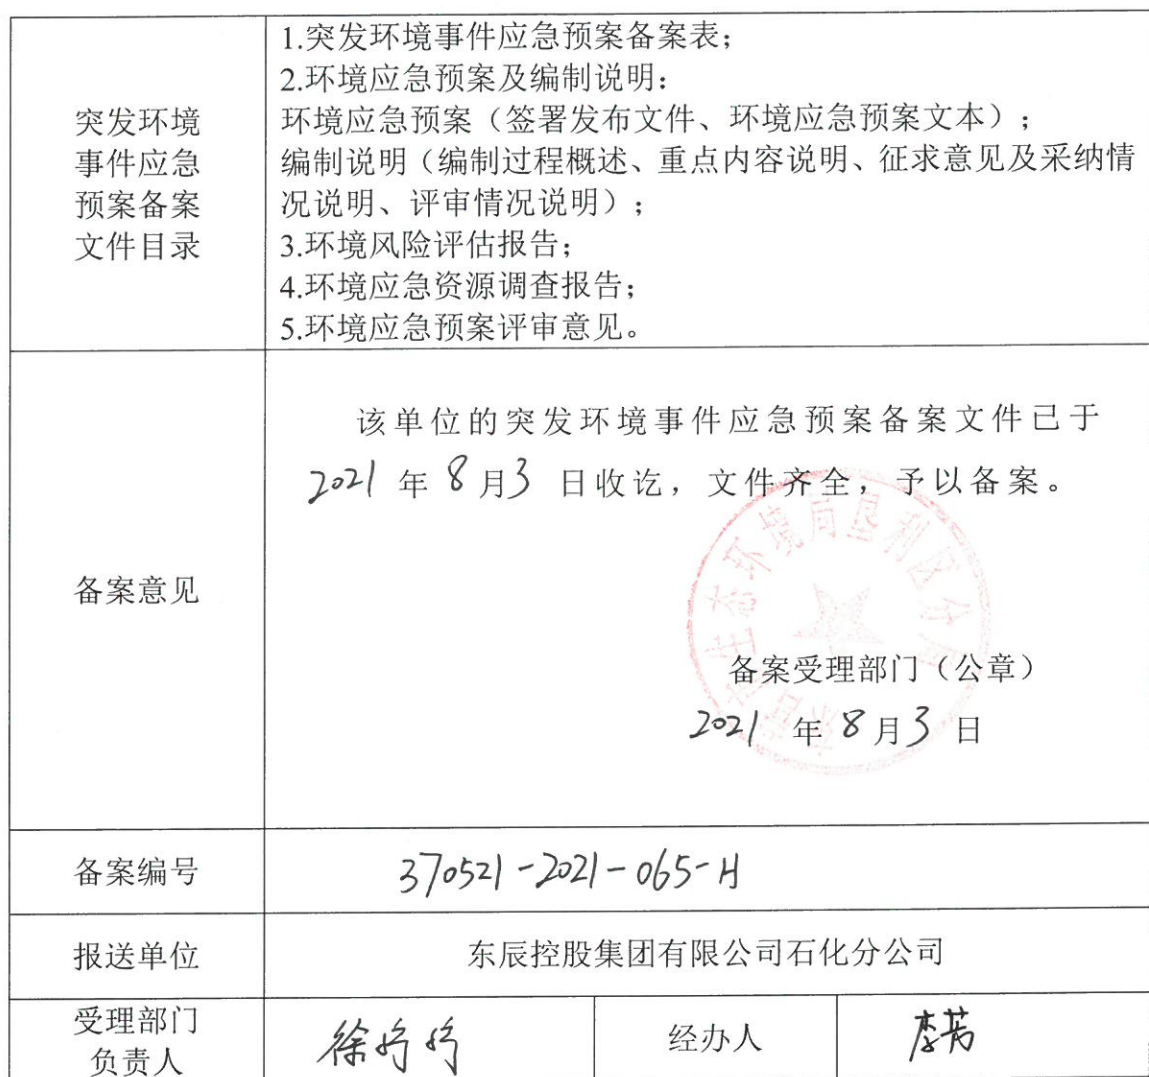 突发环境
事件应急
预案备案
文件目录
1.突发环境事件应急预案备案表；
2.环境应急预案及编制说明：
环境应急预案（签署发布文件、环境应急预案文本）；
编制说明（编制过程概述、重点内容说明、征求意见及采纳情
况说明、评审情况说明）；
3.环境风险评估报告；
4.环境应急资源调查报告；
5.环境应急预案评审意见。
备案意见
该单位的突发环境事件应急预案备案文件已于
2021 年 8 月 3 日收讫，文件齐全，予以备案。
东营市生态环境局垦利区分局
备案受理部门（公章）
2021 年 8 月 3 日
备案编号
370521-2021-065-H
报送单位
东辰控股集团有限公司石化分公司
受理部门
负责人
徐
经办人
李芳